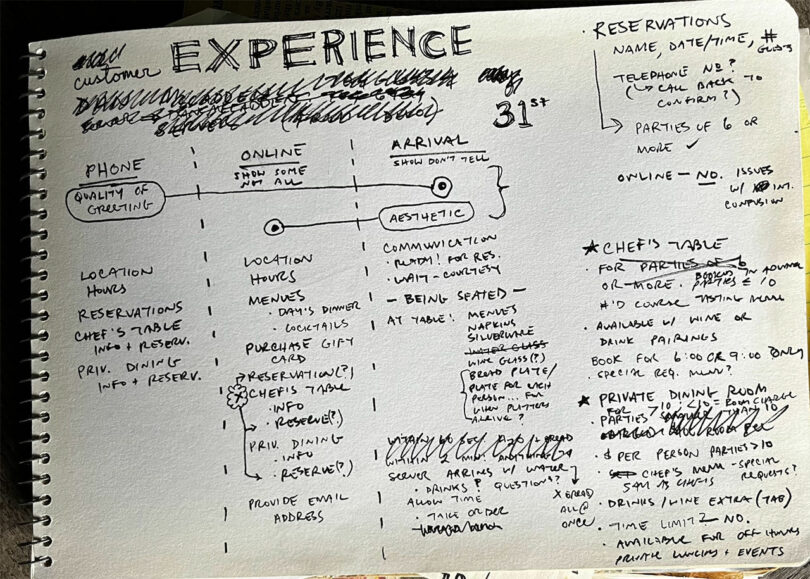 customer
EXPERIENCE
31ST
PHONE
QUALITY OF
GREETING
LOCATION
HOURS
RESERVATIONS
CHEF'S TABLE
INFO + RESERV.
PRIV. DINING
INFO + RESERV.
ONLINE
SHOW SOME
NOT ALL
LOCATION
HOURS
MENUES
· DAY'S DINNER
· COCKTAILS
PURCHASE GIFT
CARD
RESERVATION(?)
CHEF'S TABLE
· INFO
· RESERVE(?)
PRIV. DINING
· INFO
· RESERVE(?)
PROVIDE EMAIL
ADDRESS
ARRIVAL
SHOW DON'T TELL
AESTHETIC
COMMUNICATION
· READY! FOR RES.
· WAIT - COURTESY
— BEING SEATED —
AT TABLE: MENUES
NAPKINS
SILVERWARE
WATER GLASS
WINE GLASS(?)
BREAD PLATE/
PLATE FOR EACH
PERSON... FOR
WHEN PLATTERS
ARRIVE?
SERVER ARRIVES W/ WATER
· DRINKS? QUESTIONS?
ALLOW TIME
· TAKE ORDER
X BREAD
ALL @
ONCE
· RESERVATIONS
NAME, DATE/TIME, #
GUESTS
TELEPHONE No?
(↳ CALL BACK TO
CONFIRM?)
→ PARTIES OF 6 OR
MORE ✓
ONLINE — NO. ISSUES
W/ INT.
CONFUSION
★ CHEF'S TABLE
· FOR PARTIES OF 6
OR MORE. BOOKED IN ADVANCE
PARTIES ≤ 10
#'D COURSE TASTING MENU
· AVAILABLE W/ WINE OR
DRINK PAIRINGS
BOOK FOR 6:00 OR 9:00 ONLY
· SPECIAL REQ. MENU?
★ PRIVATE DINING ROOM
FOR >10; <10 = ROOM CHARGE
· PARTIES THAN 10
· $ PER PERSON PARTIES >10
· CHEF'S MENU - SPECIAL
SAME AS CHEF'S REQUESTS?
· DRINKS/WINE EXTRA (TAB)
· TIME LIMIT? — NO.
· AVAILABLE FOR OFF HOURS
PRIVATE LUNCHES + EVENTS